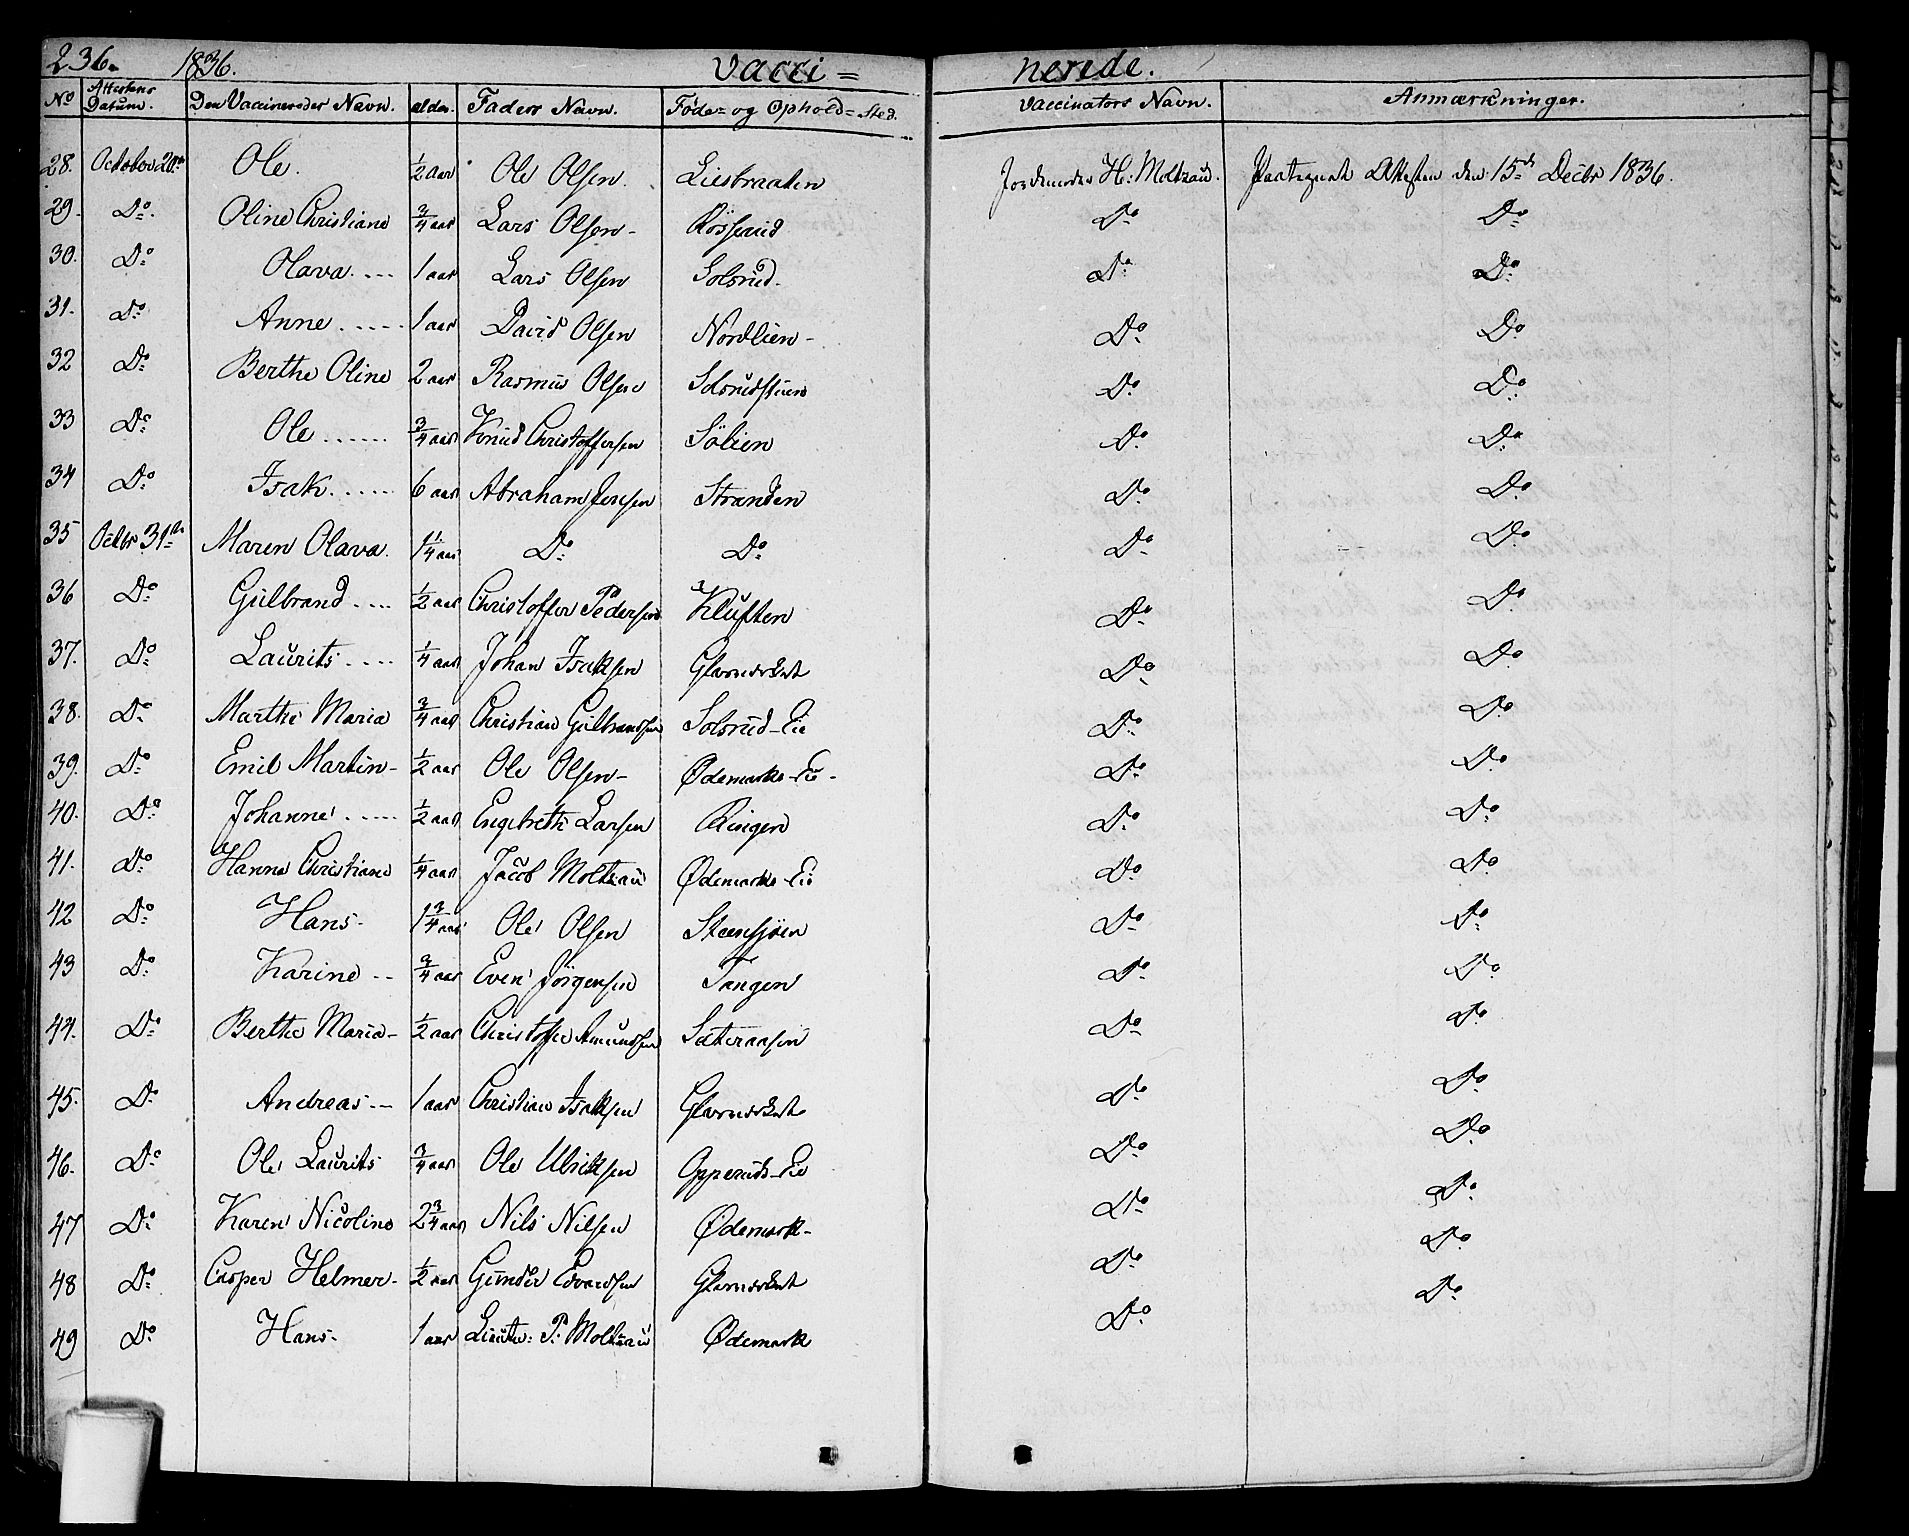 236. 1836. Vacci= nerede.
No Attestens Datum. Den Vaccineredes Navn. alder. Faders Navn. Føde= og Ophold=Sted. Vaccinators Navn. Anmærkninger.
28. October 20de Ole. 1/2 aar Ole Olsen. Liesbraaten Jordemoder H: Moltzau. Paategnet Attesten den 15de Decbr 1836.
29. Do Oline Christiane 3/4 aar Lars Olsen- Rösserud Do Do
30. Do Olava.... 1 aar Lars Olsen Solsrud. Do Do
31. Do Anne..... 1 aar David Olsen Nordlien- Do Do
32 Do Berthe Oline 2 aar Rasmus Olsen Solsrudstuen Do Do
33 Do Ole...... 3/4 aar Knud Christoffersen Sölien Do Do
34 Do Isak...... 6 aar Abraham Jensen Stranden Do Do
35 Octbr 31te Maren Olava. 1 1/4 aar Do Do Do Do
36 Do Gulbrand.... 1/2 aar Christoffer Pedersen Kluften Do Do
37. Do Laurits.... 1/4 aar Johan Isaksen Glarneskat Do Do
38. Do Marthe Maria 3/4 aar Christian Gulbrandsen Solsrud-Eie Do Do
39. Do Emil Martin- 1/2 aar Ole Olsen- Ødemarks-Eie- Do Do
40. Do Johanne..... 1/2 aar Engebreth Larsen Ringen Do Do
41. Do Hanna Christiane 1/4 aar Jacob Moltzau Ødemarks Eie Do Do
42 Do Hans- 1 3/4 aar Ole Olsen Steensjöen Do Do
43 Do Karine -- 3/4 aar Even Jörgensen Tangen Do Do
44. Do Berthe Maria- 1/2 aar Christoffer Amundsen Sæteraasen Do Do
45. Do Andreas.-- 1 aar Christian Isaksen Do Do
46. Do Ole Laurits 3/4 aar Ole Ulriksen Opperuds-Eie Do Do
47 Do Karen Nicoline 2 3/4 aar Nils Nilsen Ødemark- Do Do
48 Do Casper Helmer- 1/2 aar Gunder Edvardsen Do Do
49 Do Hans- 1 aar Lieutn: P: Moltzau Ødemark Do